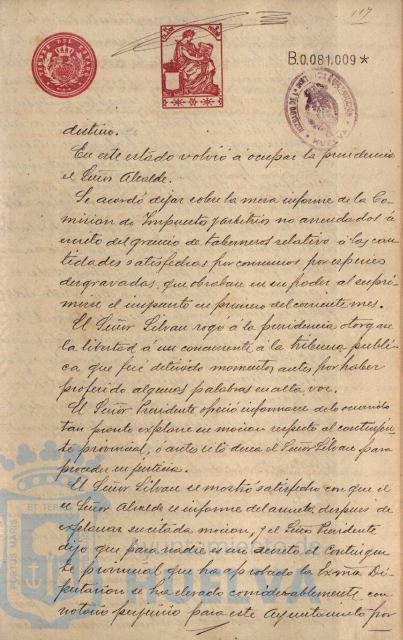 117
TIMBRE DEL ESTADO
B.0.081,009*
HUELVA
destino.
En este estado volvió á ocupar la presidencia
el Señor Alcalde.
Se acordó dejar sobre la mesa informe de la Co-
mision de Impuestos y arbitrios no arrendados á
escrito del gremio de taberneros relativo á las can-
tidades satisfechas por consumos por especies
desgravadas, que obraban en su poder al supri-
mirse el impuesto en primero del corriente mes.
El Señor Silvan rogó á la presidencia otorgue
la libertad á un concurrente á la tribuna públi-
ca que fué detenido momentos antes por haber
proferido algunas palabras en alta voz.
El Señor Presidente ofreció informarse de lo ocurrido
tan pronto explane su mocion respecto al contingen-
te provincial, ó antes si lo desea el Señor Silvan para
proceder en justicia.
El Señor Silvan se mostró satisfecho con que el
Señor Alcalde se informe del asunto despues de
explanar su citada mocion, y el Señor Presidente
dijo que para nadie es un secreto el Contingen-
te provincial que ha aprobado la Exma Di-
putacion se ha elevado considerablemente con
notorio perjuicio para este Ayuntamiento por
PORTUS MARIS ET TERRAE
Ayuntamiento de
HUELVA